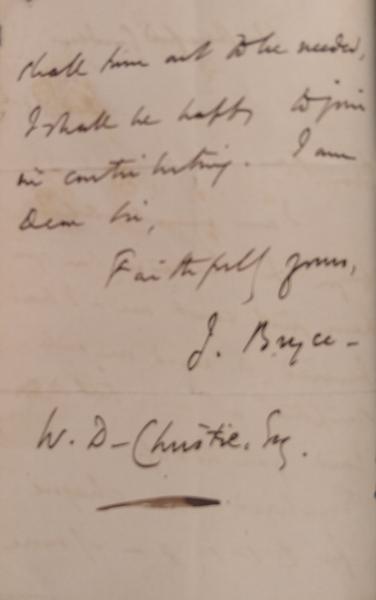 shall turn out to be needed,
I shall be happy to join
in contributing. I am
Dear Sir,
Faithfully yours,
J. Bryce -
W. D - Christie. Esq.